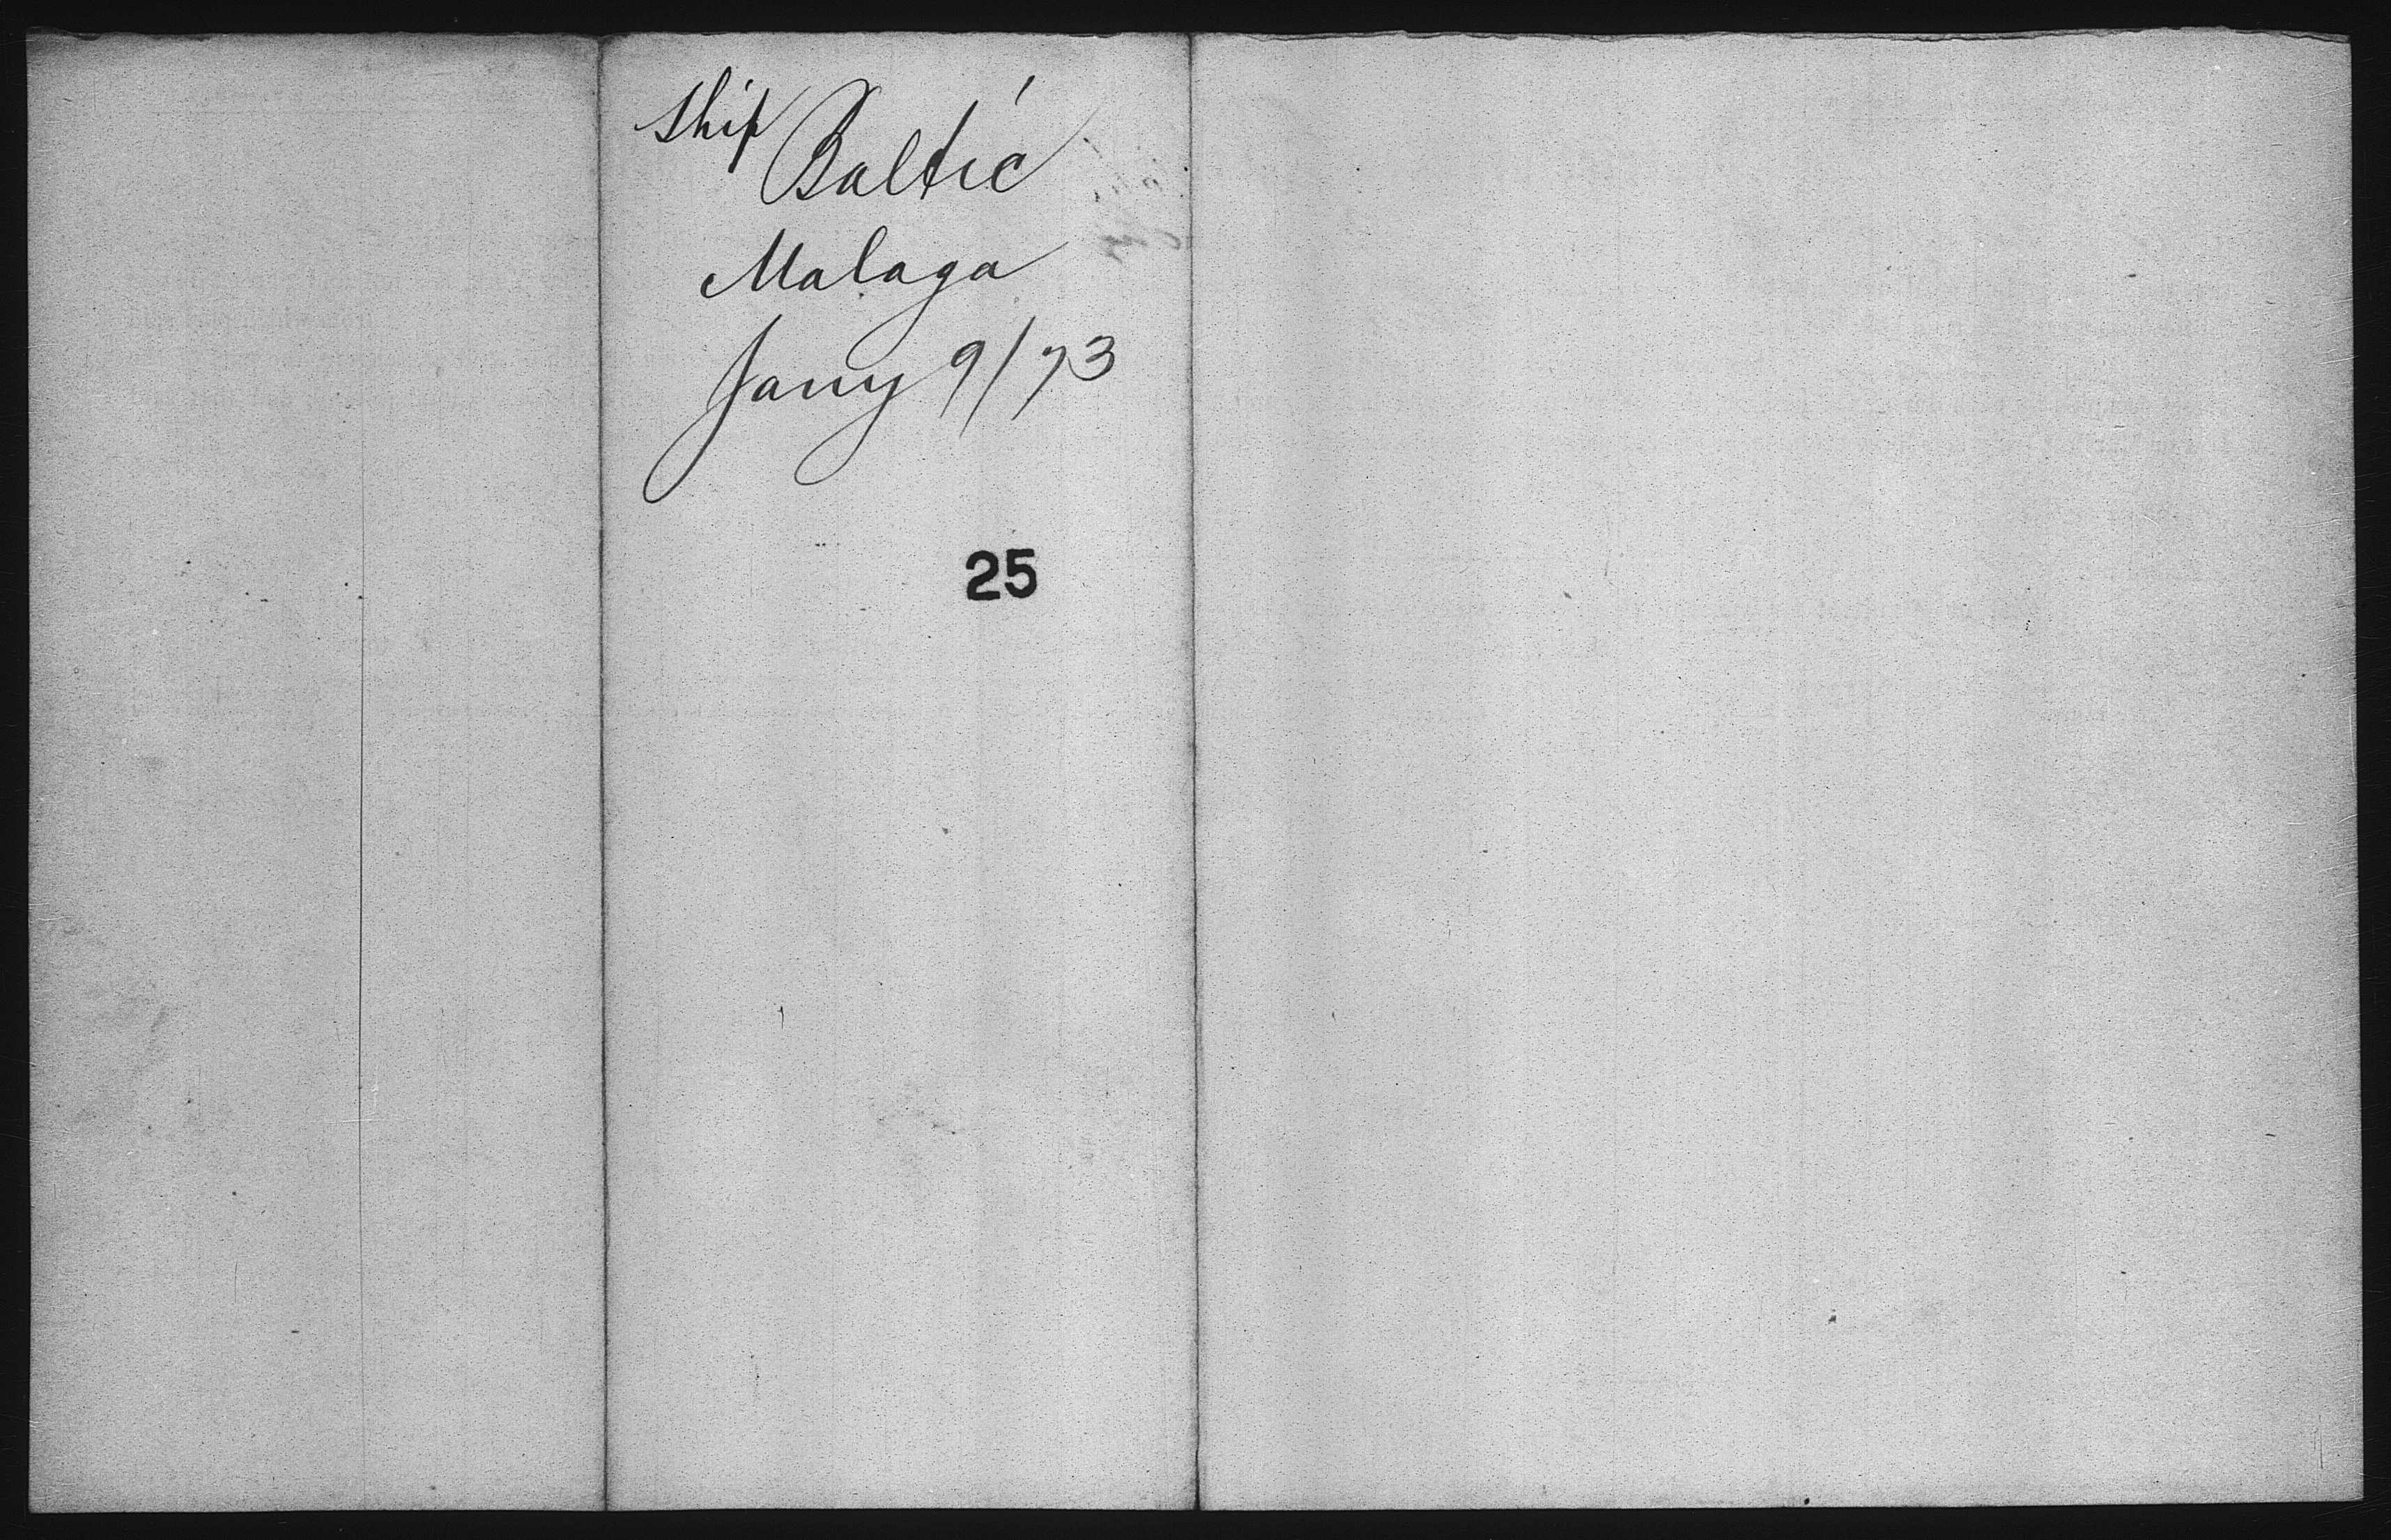 Ship
Baltic
Malaga
Jany 9/73
25